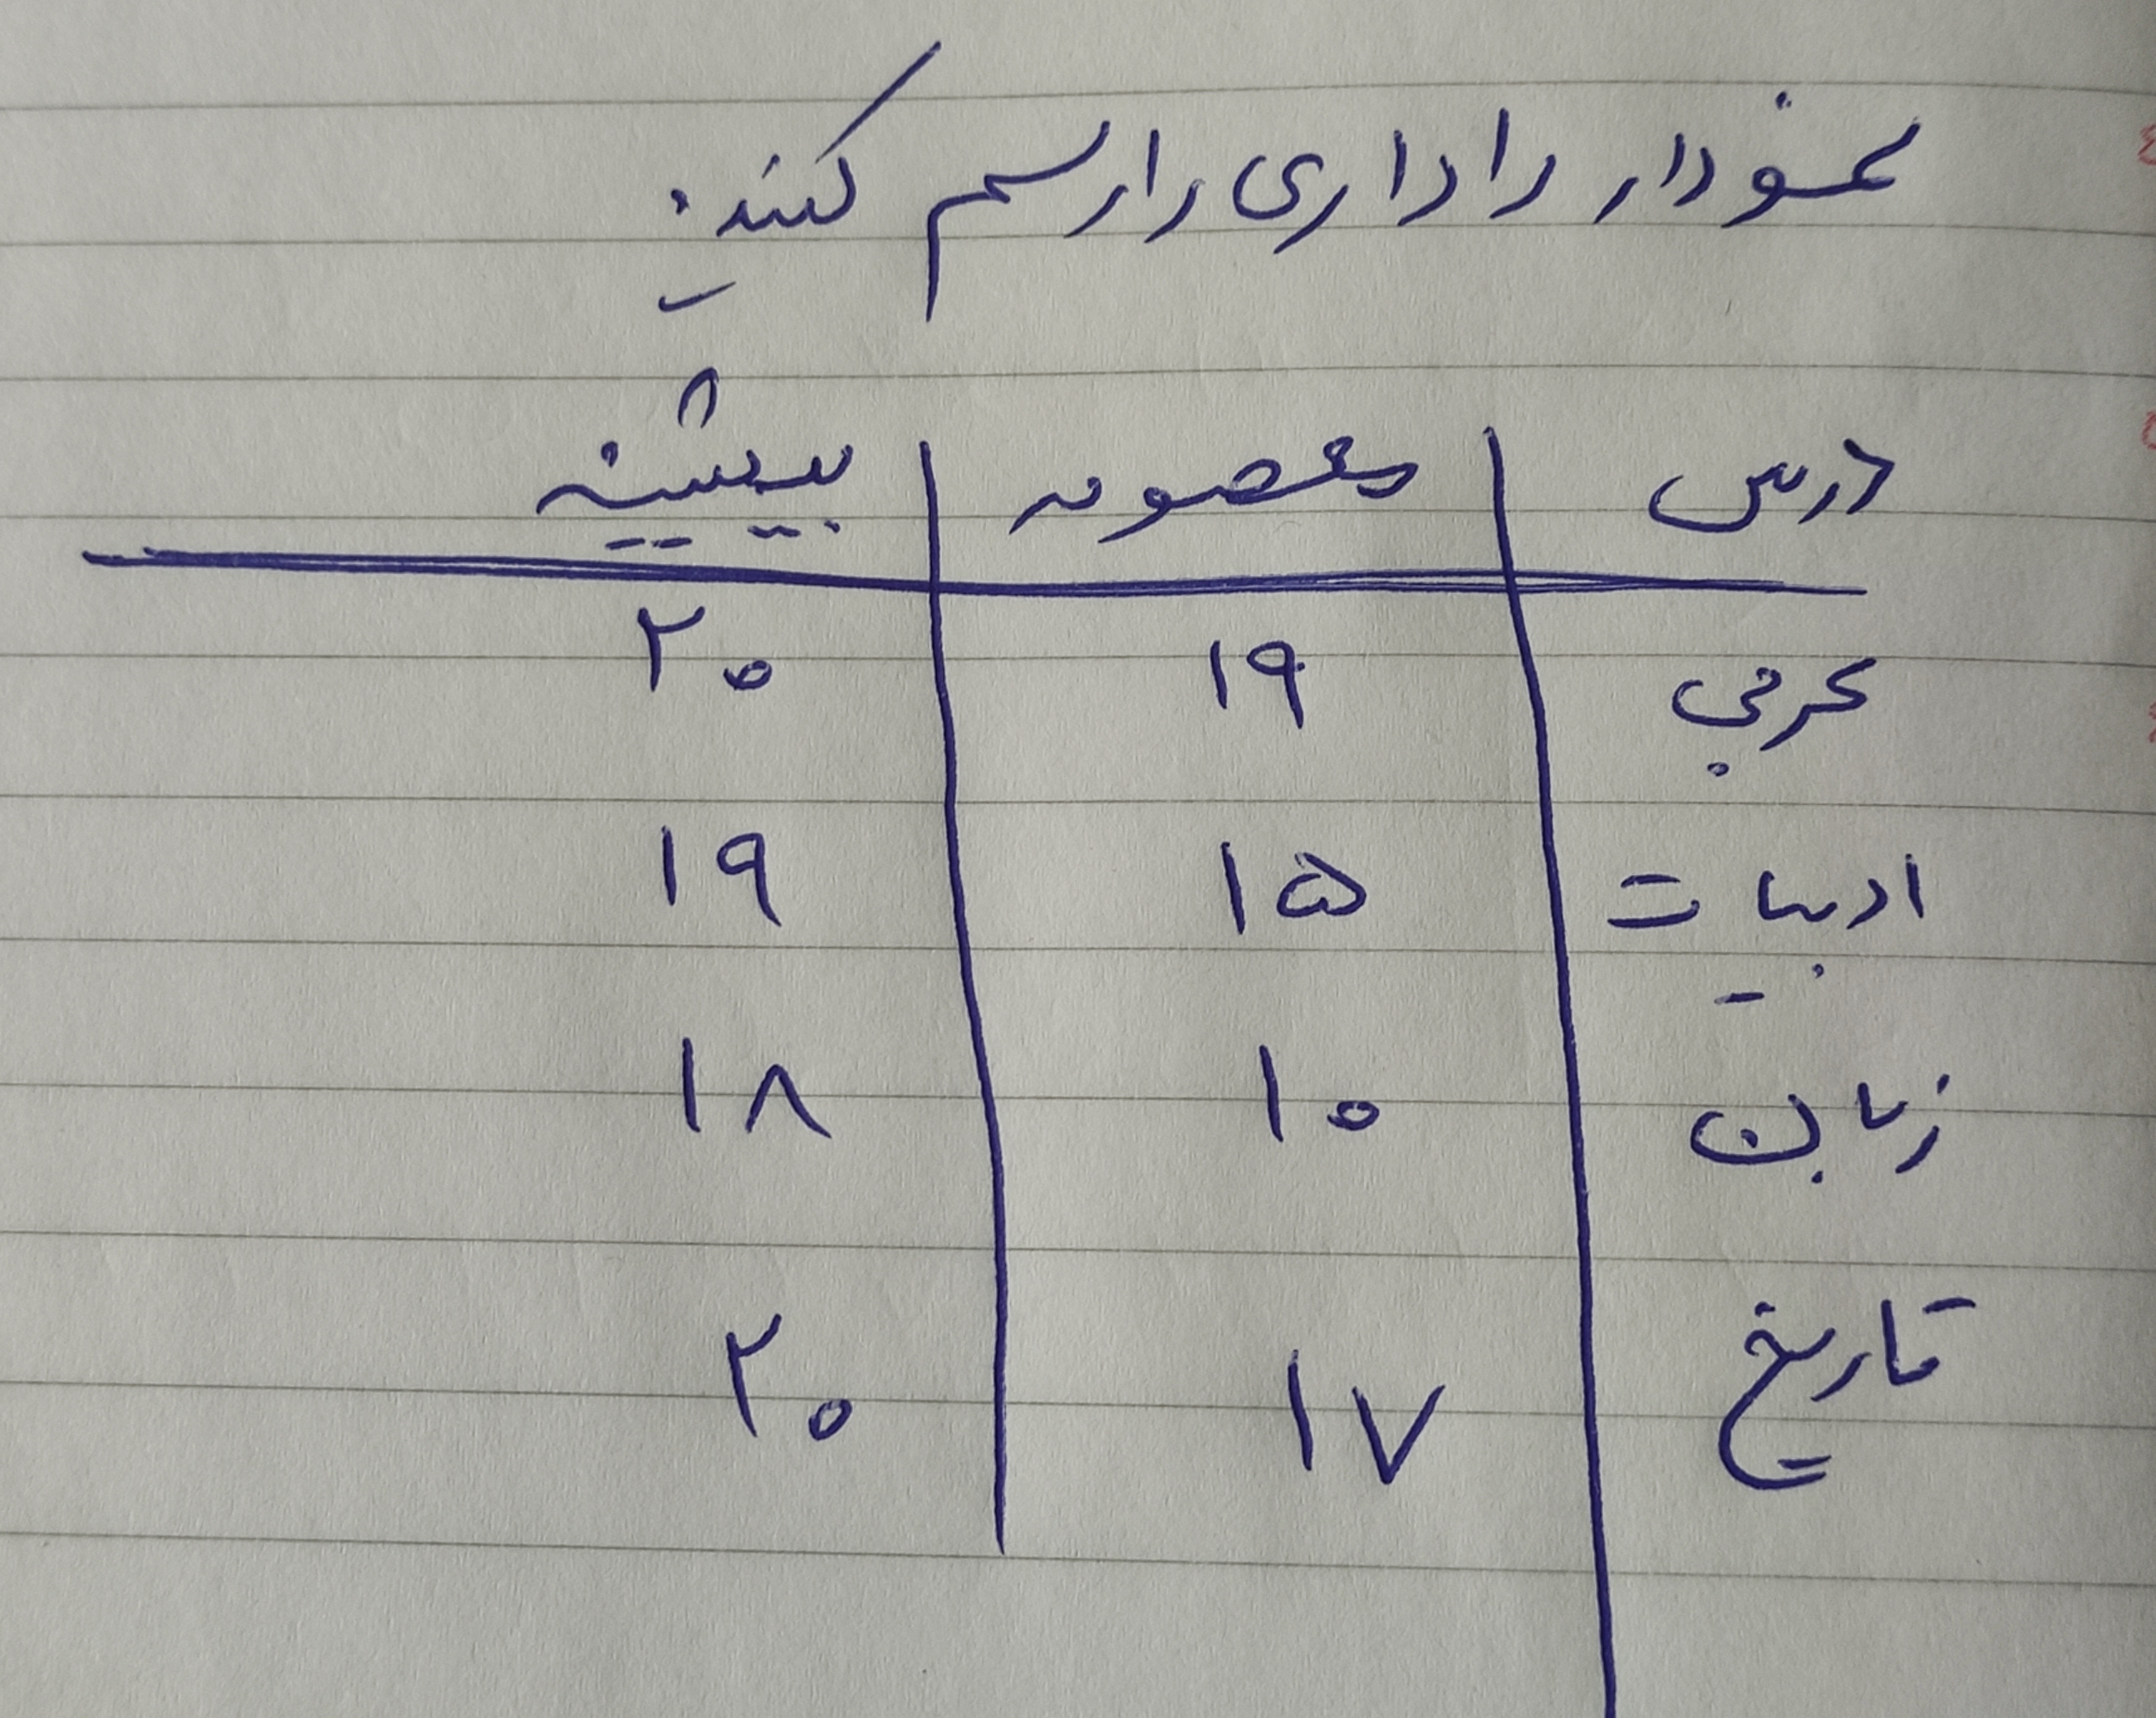 نمودار راداری را رسم کنید.
درس معصومه بیشینه
عربی ۱۹ ۲۰
ادبیات ۱۵ ۱۹
زبان ۱۰ ۱۸
تاریخ ۱۷ ۲۰